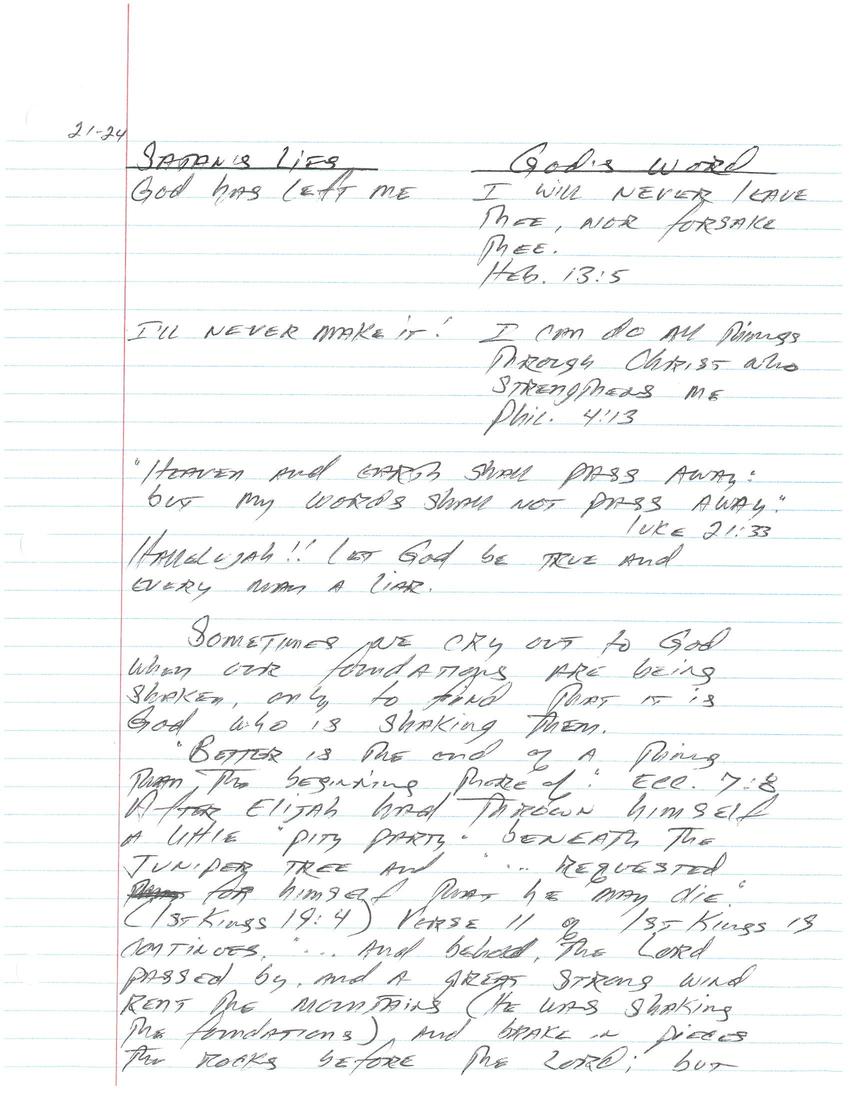 21-24
Satan's Lies God's Word
God has left me I will never leave
thee, nor forsake
thee.
Heb. 13:5
I'll never make it! I can do all things
through Christ who
strengthens me
Phil. 4:13
"Heaven and earth shall pass away:
but my words shall not pass away."
Luke 21:33
Hallelujah!! Let God be true and
every man a liar.
Sometimes we cry out to God
when our foundations are being
shaken, only to find that it is
God who is shaking them.
"Better is the end of a thing
than the beginning thereof": Ecc. 7:8
After Elijah had thrown himself
a little "pity party" beneath the
juniper tree and "... requested
for himself that he may die."
(1st Kings 19:4) Verse 11 of 1st Kings 19
continues, "... And behold, the Lord
passed by, and a great strong wind
rent the mountains (He was shaking
the foundations) and brake in pieces
the rocks before the Lord; but